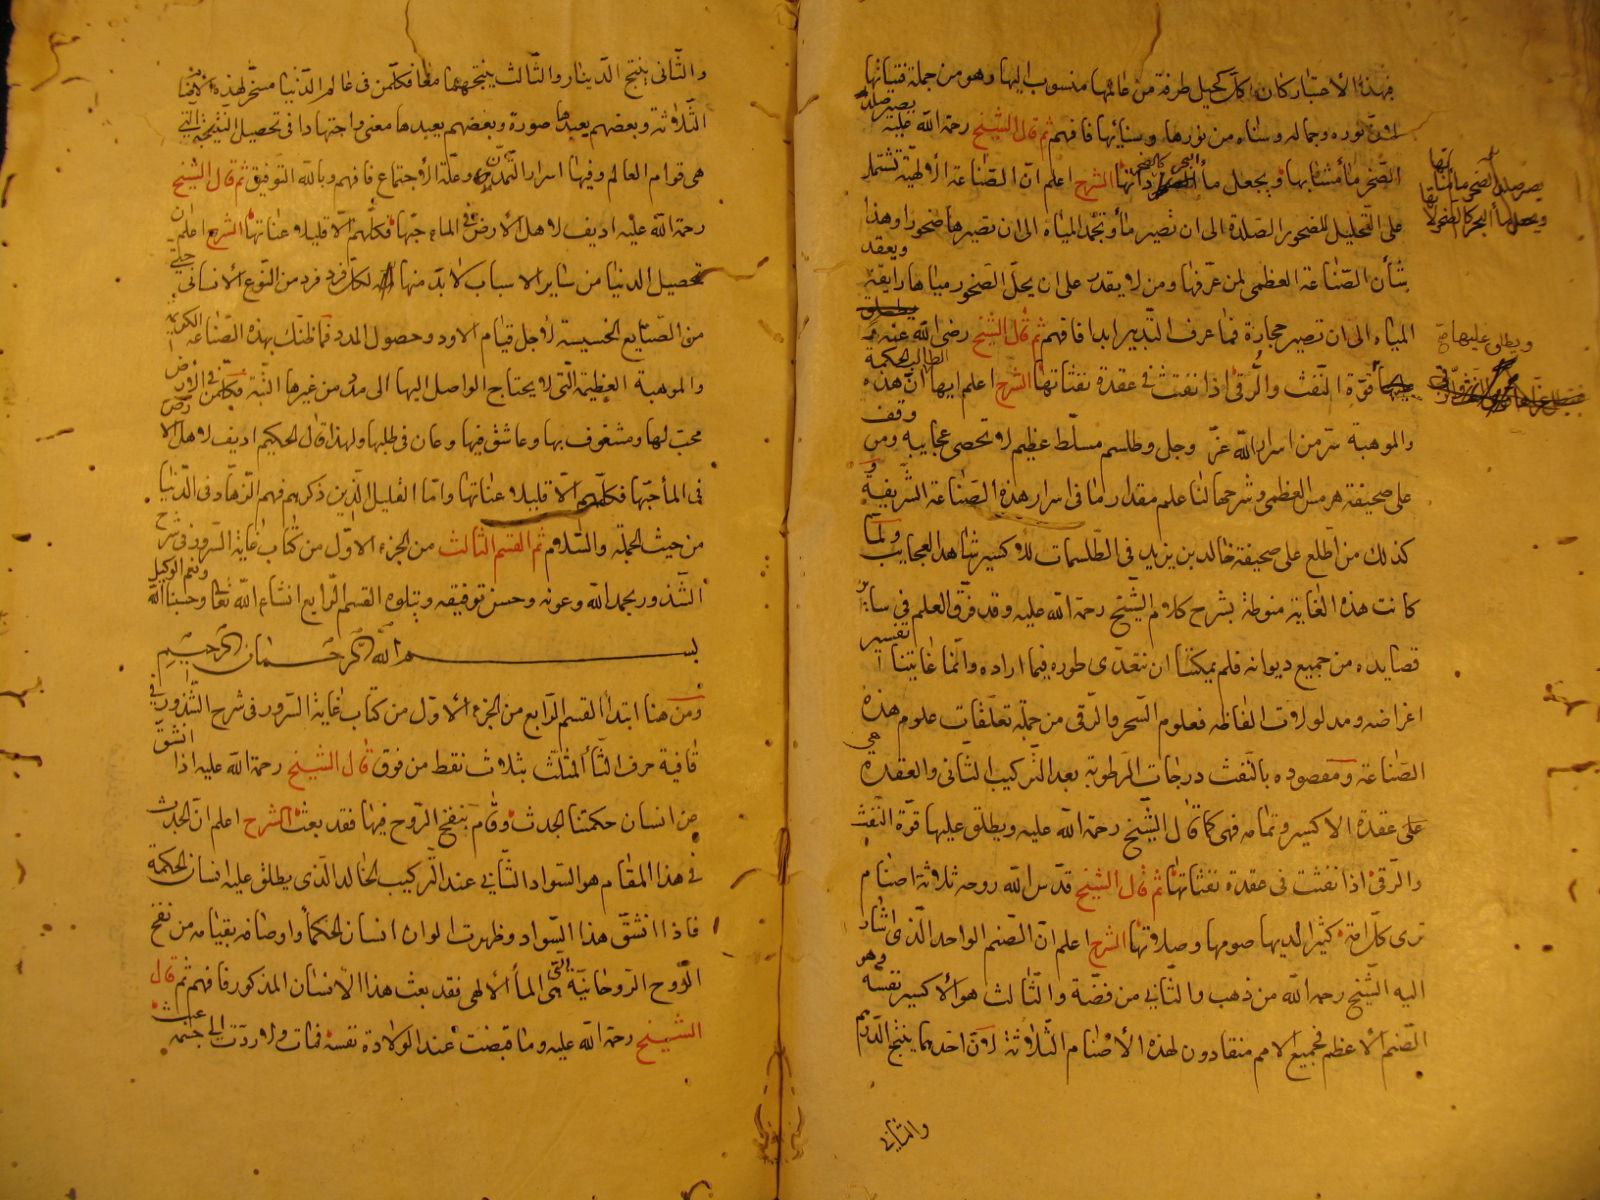 فبهذا الاختبار كان كل كحيل طرفة من عالمها منسوب اليها وهو من جملة فتياتها
لان نوره وجماله وسناه من نورها وسنائها فافهم ثم قال الشيخ رحمة الله عليه يصير صلد
الصخر ماء مشابها ويجعل ماء البحر كالصخر ذاتها الشرح اعلم ان الصناعة الالهية تشتمل
على التحليل للصخور الصلدة الى ان تصير ماء وتجمد المياه الى ان تصيرها صخورا وهذا
شأن الصناعة العظمى لمن عرفها ومن لا يقدر على ان يحل الصخور مياها رايقة ويعقد
المياه الى ان تصير حجارة فما عرف التدبير ابدا فافهم ثم قال الشيخ رضى الله عنه
قوة النفث والرقى اذا نفثت في عقدة نفثاتها الشرح اعلم ايها الطالب للحكمة ان هذه
والموهبة سر من اسرار الله عز وجل وطلسم مسلط عظيم لا تحصى عجايبه ومن وقف
على صحيفة هرمس العظمى وشرحها لنا علم مقدار ما فى اسرار هذه الصناعة الشريفة و
كذلك من اطلع على صحيفة خالد بن يزيد فى الطلسمات للاكسير شاهد العجايب ولما
كانت هذه الغاية منوطة بشرح كلام الشيخ رحمة الله عليه وقد فرق العلم في ساير
قصايده من جميع ديوانه فلم يمكننا ان نتعدى طوره فيما اراده وانما غايتنا تفسير
اغراضه ومدلولات الفاظه فعلوم السحر والرقى من جملة تعلقات علوم هذه
الصناعة ومقصوده بالنفث درجات الرطوبة بعد التركيب الثانى والعقدة هي
على عقدة الاكسير وتمامه فهى كما قال الشيخ رحمة الله عليه ويطلق عليها قوة النفث
والرقى اذا نفثت في عقدة نفثاتها ثم قال الشيخ قدس الله روحه ثلاثة اصنام
ترى كل امة كثير لديها صومها وصلاتها الشرح اعلم ان الصنم الواحد الذى اشار
اليه الشيخ رحمه الله من ذهب والثاني من فضة والثالث هو الاكسير نفسه وهو
الصنم الاعظم فجميع الامم منقادون لهذه الاصنام الثلاثة لان احدهما ينتج الدرهم
والثاني
يصير صلد الصخر ماء مشابها
ويجعل ماء البحر كالصخر
ويطلق عليها
والثانى ينتج الدينار والثالث ينتجهما معا فكل من فى عالم الدنيا مسخر لهذه الاصنام
الثلاثة وبعضهم يعبدها صورة وبعضهم يعبدها معنى واجتهادا فى تحصيل النتيجة التي
هى قوام العالم وفيها اسرار التمدن وعلة الاجتماع فافهم وبالله التوفيق ثم قال الشيخ
رحمة الله عليه اديف لاهل الارض في الماء حبها فكلهم الا قليلا عناتها الشرح اعلم ان
تحصيل الدنيا من ساير الاسباب لا بد منها لكل فرد فرد من النوع الانسانى حتى
من الصنايع الخسيسة لاجل قيام الاود وحصول المدد فما ظنك بهذه الصناعة الكريمة
والموهبة العظيمة التى لا يحتاج الواصل اليها الى مدد من غيرها البتة فكل من فى الارض
محب لها ومشغوف بها وعاشق فيها وعان فى طلبها ولهذا قال الحكيم اديف لاهل الارض
فى الماء حبها فكلهم الا قليلا عناتها واما القليل الذين ذكرهم فهم الزهاد فى الدنيا
من حيث الجملة والسلام ثم القسم الثالث من الجزء الاول من كتاب غاية السرور فى شرح
الشذور بحمد الله وعونه وحسن توفيقه ويتلوه القسم الرابع انشاء الله تعالى وحسبنا الله ونعم الوكيل
بسم الله الرحمان الرحيم
ومن هنا ابتدأ القسم الرابع من الجزء الاول من كتاب غاية السرور فى شرح الشذور في
قافية حرف الثاء المثلث بثلاث نقط من فوق قال الشيخ رحمة الله عليه اذا انشق
عن انسان حكمتنا الجدث وقام بنفخ الروح فيها فقد بعث الشرح اعلم ان الجدث
فى هذا المقام هو السواد الثاني عند التركيب الخالد الذى يطلق عليه انسان الحكمة
فاذا انشق هذا السواد وظهرت الوان انسان الحكماء واوصافه بقيامه من نفخ
الروح الروحانية التى هى الماء الالهى فقد بعث هذا الانسان المذكور فافهم ثم قال
الشيخ رحمة الله عليه وما قبضت عند الولادة نفسه فمات ولا ردت الى جسمه عبث